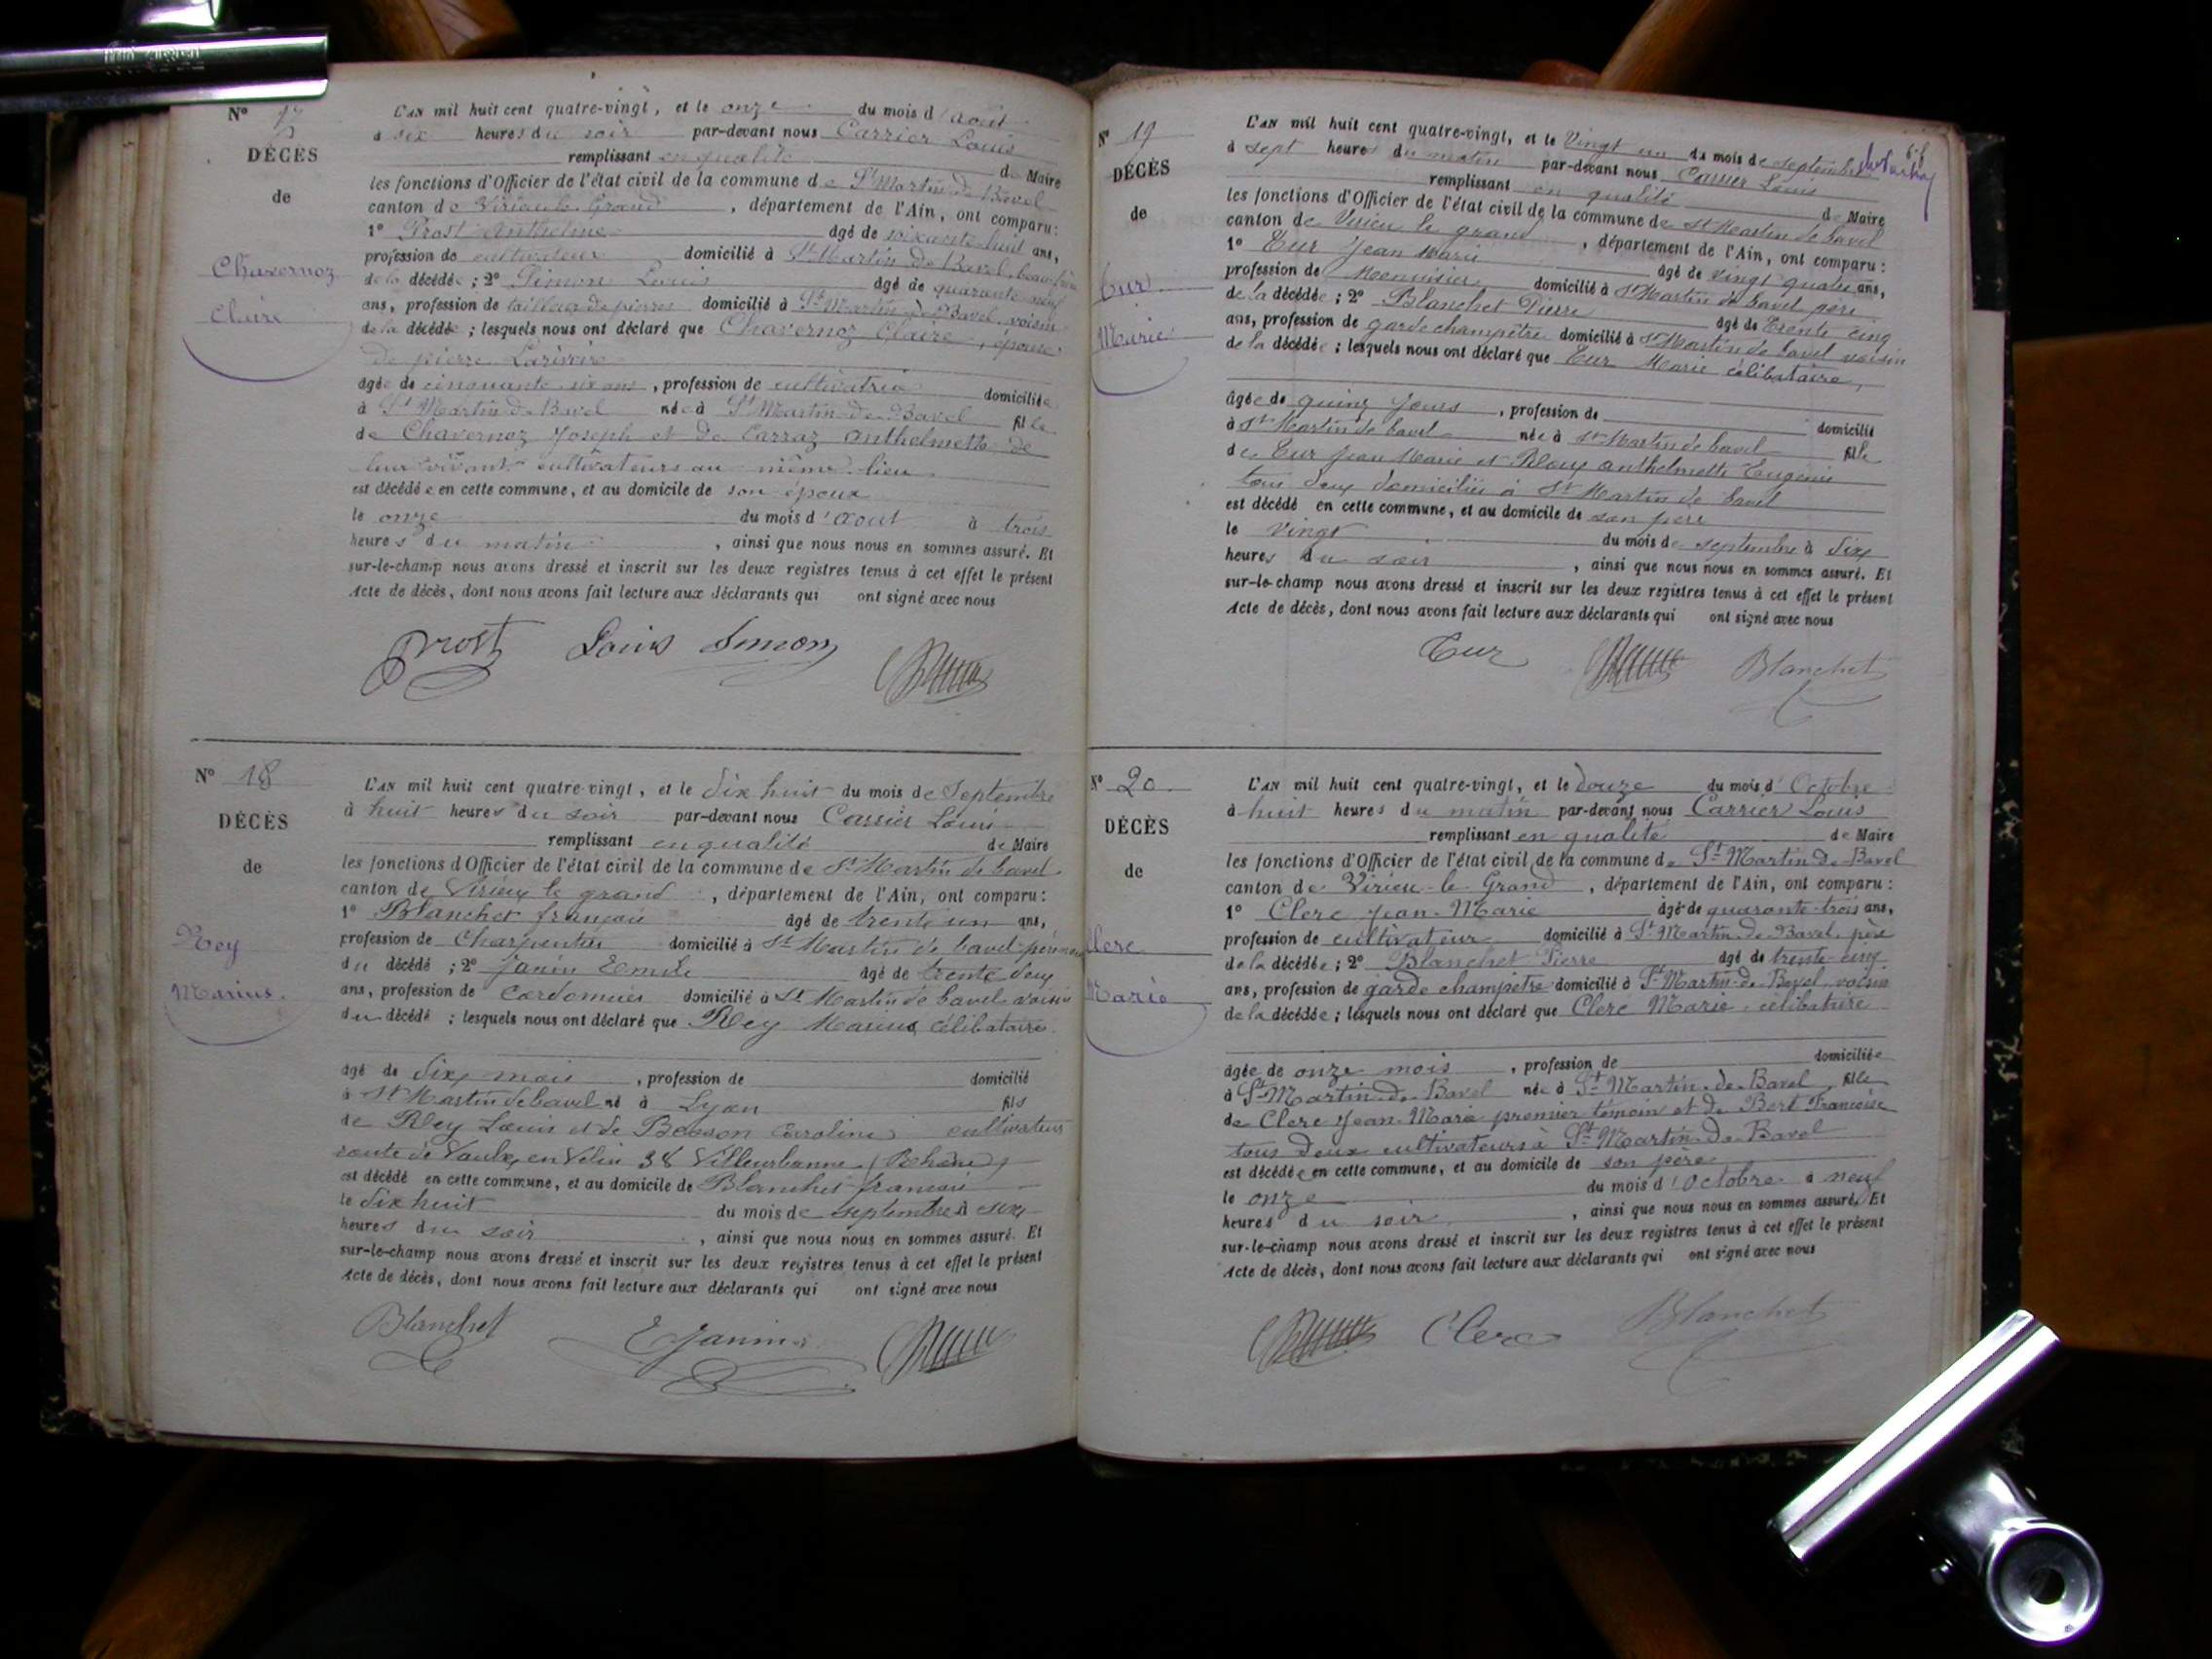 N° 17
DÉCÈS
de
Chavernoz
Claire
L'AN mil huit cent quatre-vingt, et le onze du mois d'août
à six heures du soir par-devant nous Carrier Louis
remplissant en qualité de Maire
les fonctions d'Officier de l'état civil de la commune de St Martin de Bavel
canton de Virieu le Grand, département de l'Ain, ont comparu:
1° Prost Anthelme âgé de soixante-huit ans,
profession de cultivateur domicilié à St Martin de Bavel, beau frère
de la décédée; 2° Simon Louis âgé de quarante neuf
ans, profession de tailleur de pierres domicilié à St Martin de Bavel, voisin
de la décédée; lesquels nous ont déclaré que Chavernoz Claire, épouse
de pierre Larivoire
âgée de cinquante six ans, profession de cultivatrice domiciliée
à St Martin de Bavel née à St Martin de Bavel fille
de Chavernoz Joseph et de Carraz Anthelmette de
leur vivant cultivateurs au même lieu
est décédée en cette commune, et au domicile de son époux
le onze du mois d'août à trois
heures du matin, ainsi que nous nous en sommes assuré. Et
sur-le-champ nous avons dressé et inscrit sur les deux registres tenus à cet effet le présent
Acte de décès, dont nous avons fait lecture aux déclarants qui ont signé avec nous
Prost Louis Simon
N° 18
DÉCÈS
de
Rey
Marius
L'AN mil huit cent quatre-vingt, et le dix huit du mois de Septembre
à huit heures du soir par-devant nous Carrier Louis
remplissant en qualité de Maire
les fonctions d'Officier de l'état civil de la commune de St Martin de bavel
canton de Virieu le grand, département de l'Ain, ont comparu:
1° Blanchet françois âgé de trente un ans,
profession de Charpentier domicilié à St Martin de bavel
du décédé; 2° Janin Emile âgé de trente deux
ans, profession de Cordonnier domicilié à St Martin de bavel voisin
du décédé; lesquels nous ont déclaré que Rey Marius célibataire
âgé de dix mois, profession de domicilié
à St Martin de bavel né à Lyon fils
de Rey Louis et de Besson Caroline cultivateurs
route de Vaulx en Velin 38 Villeurbanne (Rhône)
est décédé en cette commune, et au domicile de Blanchet françois
le dix huit du mois de septembre à six
heures du soir, ainsi que nous nous en sommes assuré. Et
sur-le-champ nous avons dressé et inscrit sur les deux registres tenus à cet effet le présent
Acte de décès, dont nous avons fait lecture aux déclarants qui ont signé avec nous
Blanchet E Janin
68
N° 19
DÉCÈS
de
Tur
Marie
L'AN mil huit cent quatre-vingt, et le Vingt un du mois de septembre
à sept heures du matin par-devant nous Carrier Louis
remplissant en qualité de Maire
les fonctions d'Officier de l'état civil de la commune de St Martin de bavel
canton de Virieu le grand, département de l'Ain, ont comparu:
1° Tur Jean Marie âgé de vingt quatre ans,
profession de Menuisier domicilié à St Martin de bavel père
de la décédée; 2° Blanchet Pierre âgé de Trente cinq
ans, profession de garde champêtre domicilié à St Martin de bavel voisin
de la décédée; lesquels nous ont déclaré que Tur Marie célibataire,
âgée de quinz Jours, profession de domicilié
à St Martin de bavel née à St Martin de bavel fille
de Tur Jean Marie et Anthelmette Eugénie
tous deux domiciliés à St Martin de bavel
est décédé en cette commune, et au domicile de son père
le Vingt du mois de septembre à dix
heures du soir, ainsi que nous nous en sommes assuré. Et
sur-le-champ nous avons dressé et inscrit sur les deux registres tenus à cet effet le présent
Acte de décès, dont nous avons fait lecture aux déclarants qui ont signé avec nous
Tur Blanchet
N° 20
DÉCÈS
de
Clerc
Marie
L'AN mil huit cent quatre-vingt, et le douze du mois d'Octobre
à huit heures du matin par-devant nous Carrier Louis
remplissant en qualité de Maire
les fonctions d'Officier de l'état civil de la commune de St Martin de Bavel
canton de Virieu-le-Grand, département de l'Ain, ont comparu:
1° Clerc Jean-Marie âgé de quarante-trois ans,
profession de cultivateur domicilié à St Martin de Bavel, père
de la décédée; 2° Blanchet Pierre âgé de trente-cinq
ans, profession de garde champêtre domicilié à St Martin de Bavel voisin
de la décédée; lesquels nous ont déclaré que Clerc Marie, célibataire
âgée de onze mois, profession de domiciliée
à St Martin de Bavel née à St Martin de Bavel, fille
de Clerc Jean Marie premier témoin et de Bert Françoise
tous deux cultivateurs à St Martin de Bavel
est décédée en cette commune, et au domicile de son père
le onze du mois d'Octobre à neuf
heures du soir, ainsi que nous nous en sommes assuré. Et
sur-le-champ nous avons dressé et inscrit sur les deux registres tenus à cet effet le présent
Acte de décès, dont nous avons fait lecture aux déclarants qui ont signé avec nous
Clerc Blanchet